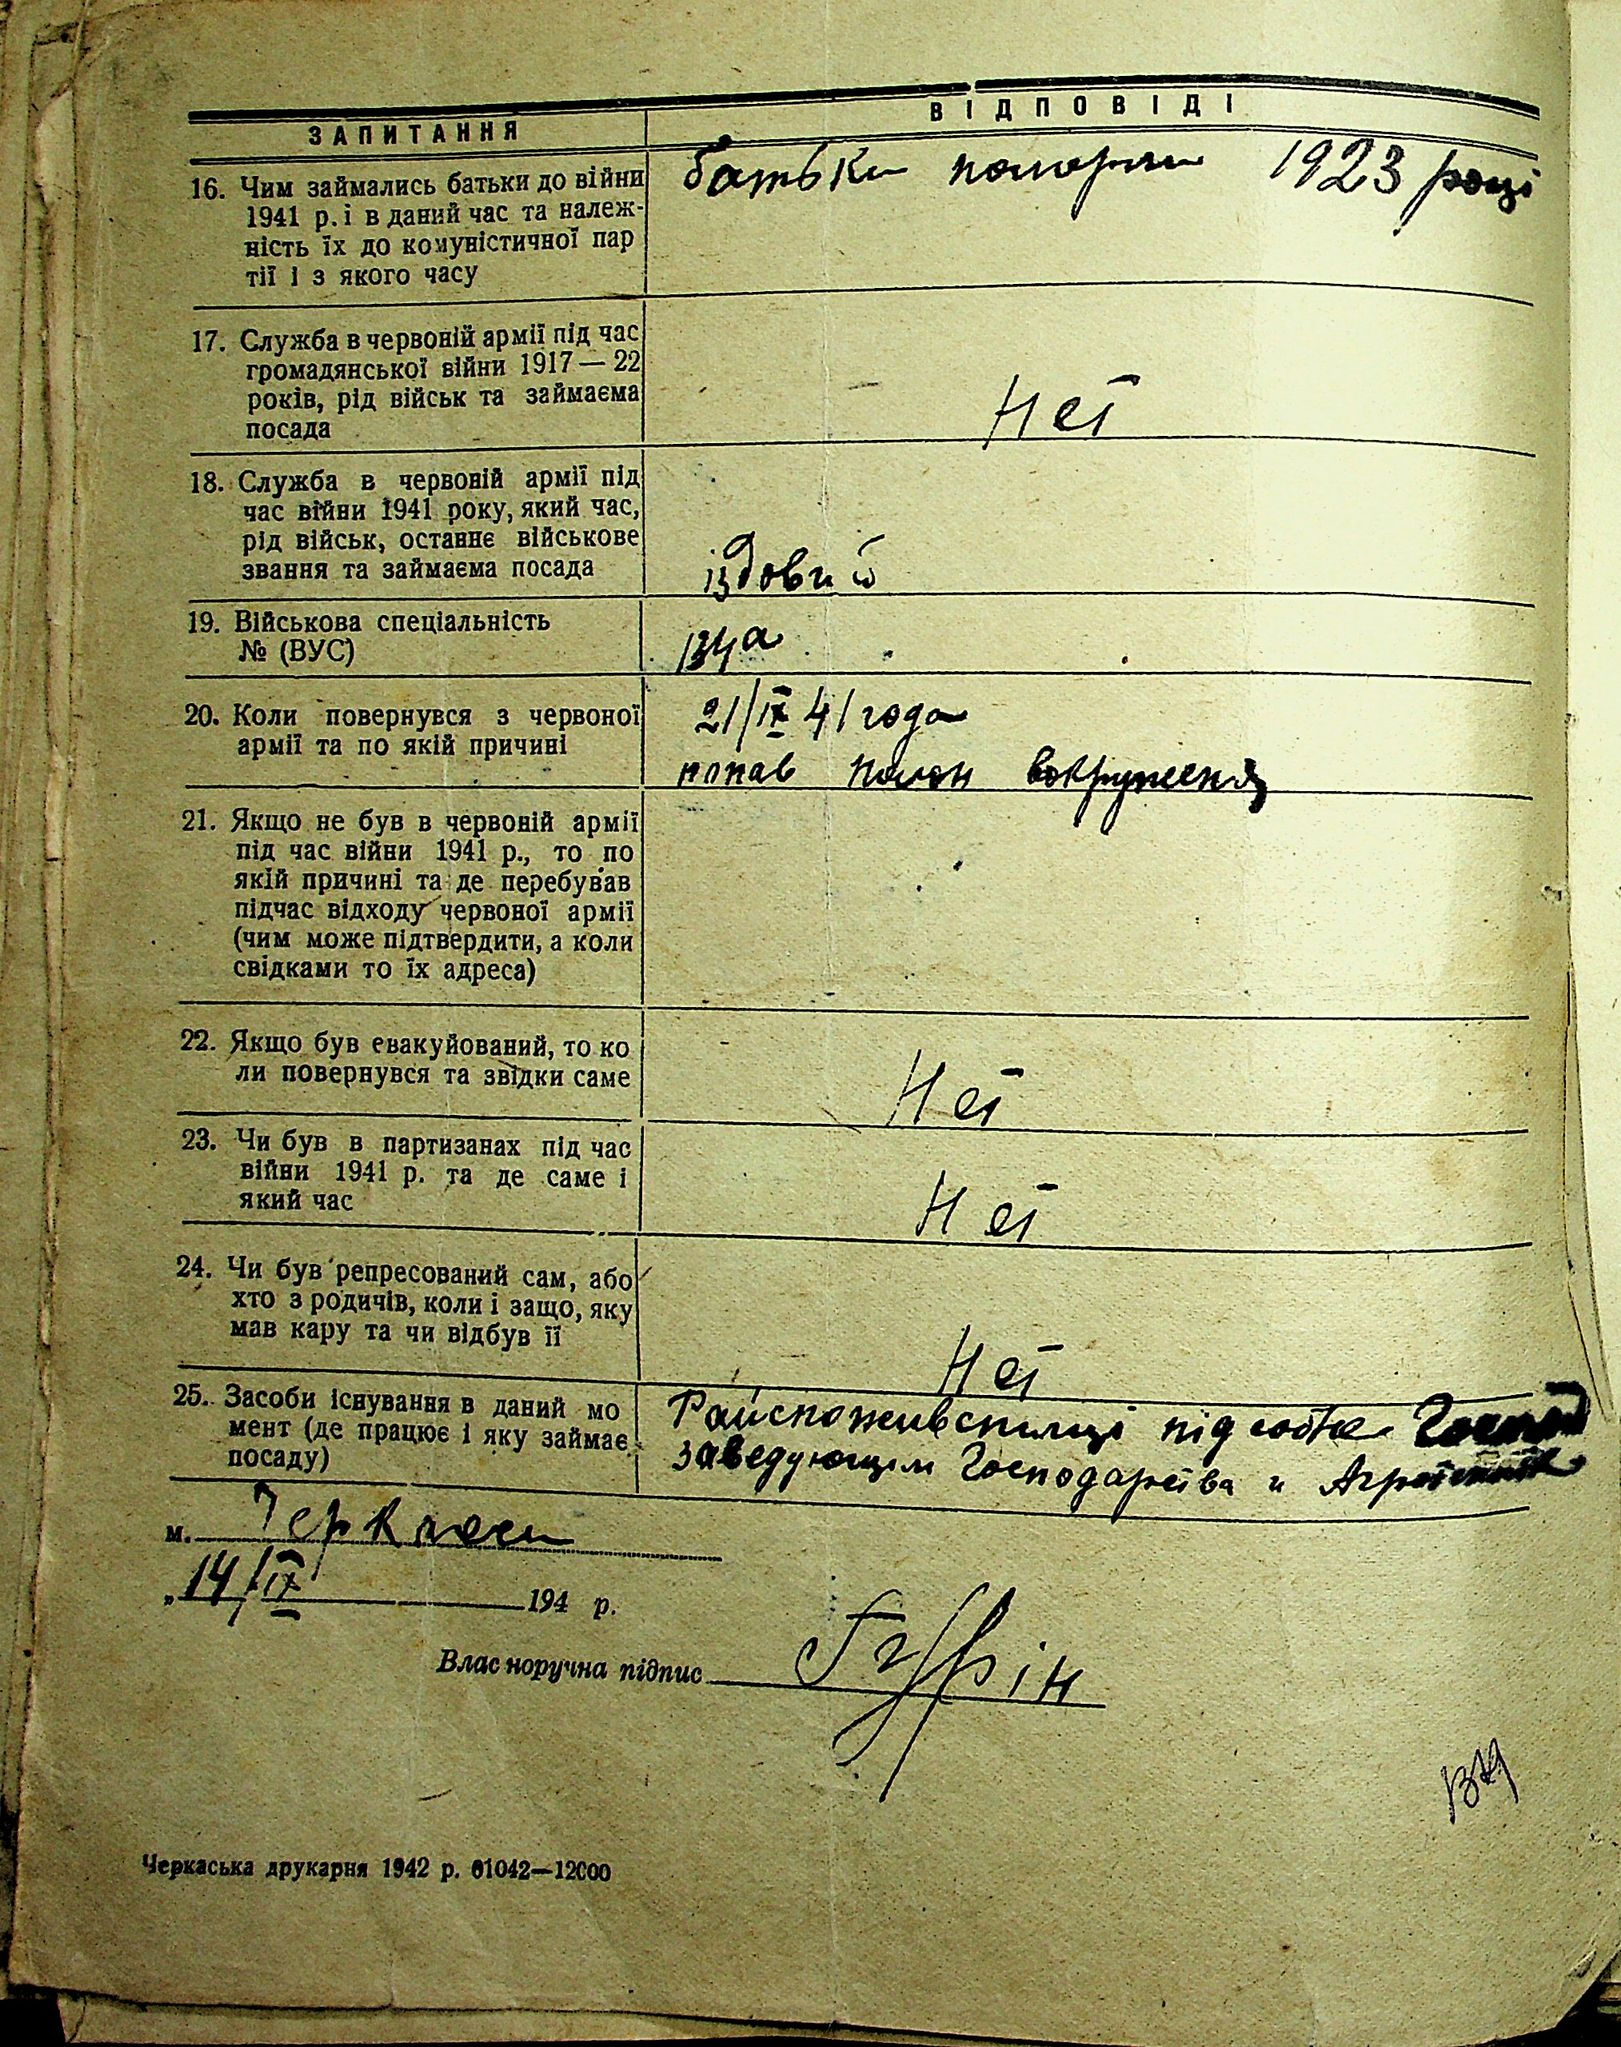 ЗАПИТАННЯ
ВІДПОВІДІ
16. Чим займались батьки до війни
1941 р. і в даний час та належ-
ність їх до комуністичної пар
тії і з якого часу
батьки померли 1923 році
17. Служба в червоній армії під час
громадянської війни 1917 — 22
років, рід військ та займаєма
посада
Нет
18. Служба в червоній армії під
час війни 1941 року, який час,
рід військ, останнє військове
звання та займаєма посада
їздовий
19. Військова спеціальність
№ (ВУС)
134а
20. Коли повернувся з червоної
армії та по якій причині
21/IX 41 года
попав полон вокружения
21. Якщо не був в червоній армії
під час війни 1941 р., то по
якій причині та де перебував
підчас відходу червоної армії
(чим може підтвердити, а коли
свідками то їх адреса)
22. Якщо був евакуйований, то ко
ли повернувся та звідки саме
Нет
23. Чи був в партизанах під час
війни 1941 р. та де саме і
який час
Нет
24. Чи був репресований сам, або
хто з родичів, коли і защо, яку
мав кару та чи відбув її
Нет
25. Засоби існування в даний мо
мент (де працює і яку займає
посаду)
Райспоживспилці підсобне
заведующим Господарства и
м. Черкассы
„ 14/IX 194 р.
Власноручна підпис
Черкаська друкарня 1942 р. 01042—12000